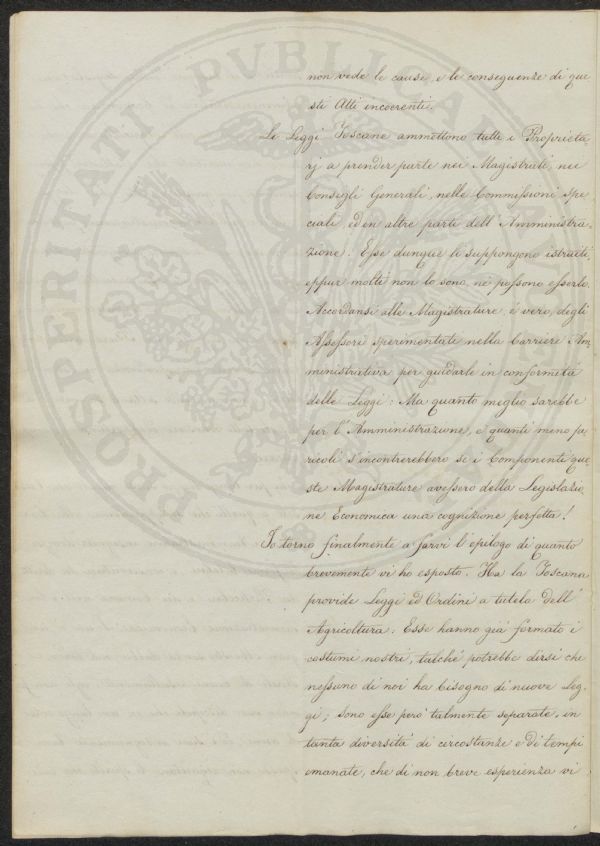 non vede le cause, e le conseguenze di que
sti Atti incoerenti.
Le Leggi Toscane ammettono tutti i Proprieta
rj a prender parte nei Magistrati, nei
Consigli Generali, nelle Commissioni spe
ciali, ed in altre parti dell'Amministra-
zione. Esse dunque li suppongono istruiti,
eppur molti non lo sono, nè possono esserlo.
Accordansi alle Magistrature, è vero, degli
Assessori sperimentati nella Carriera Am
ministrativa per guidarle in conformità
delle Leggi: Ma quanto meglio sarebbe
per l'Amministrazione, e quanti meno pe,
ricoli s'incontrerebbero se i Componenti que,
ste Magistrature avessero della Legislazio,
ne Economica una cognizione perfetta!
Io torno finalmente a farvi l'epilogo di quanto
brevemente vi ho esposto. Ha la Toscana
provide Leggi ed Ordini a tutela dell'
Agricoltura. Esse hanno già formato i
costumi nostri, talchè potrebbe dirsi che
nessuno di noi ha bisogno di nuove Leg-
gi; sono esse però talmente separate, in
tanta diversità di circostanze e di tempi
emanate, che di non breve esperienza vi
PROSPERITATI PVBLICAE